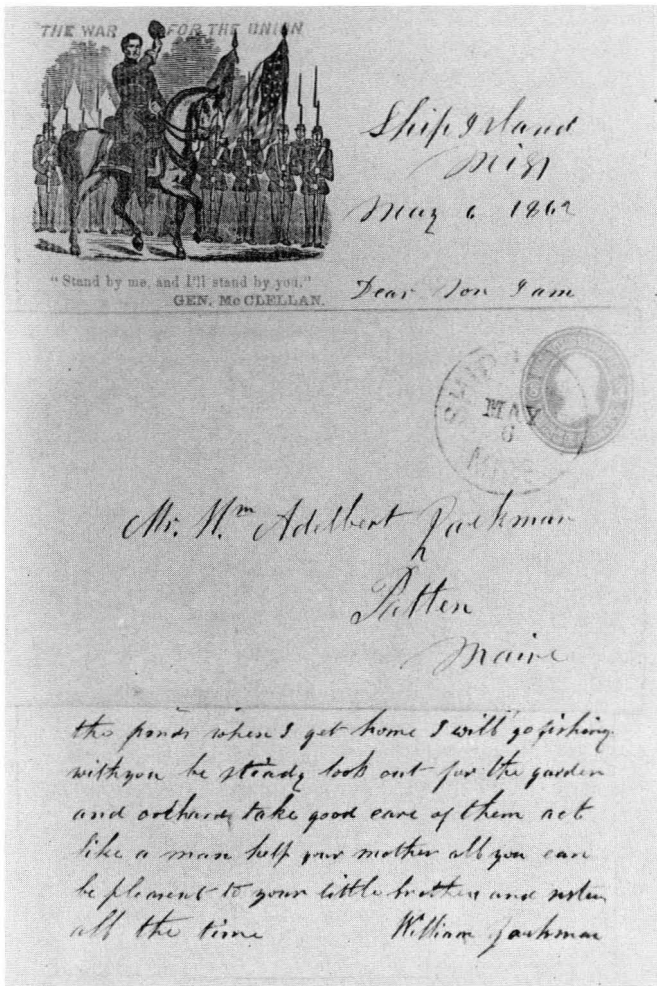 THE WAR FOR THE UNION
"Stand by me, and I'll stand by you."
GEN. McCLELLAN.
Ship Island
Miss
May 6 1862
Dear Son I am
SHIP
MAY
6
MISS
Mr. Wm Adelbert Jackman
Patten
Maine
the ponds when I get home I will go fishing
with you be steady look out for the garden
and orchard, take good care of them act
like a man help your mother all you can
be pleasent to your little brother and sister
all the time William Jackman